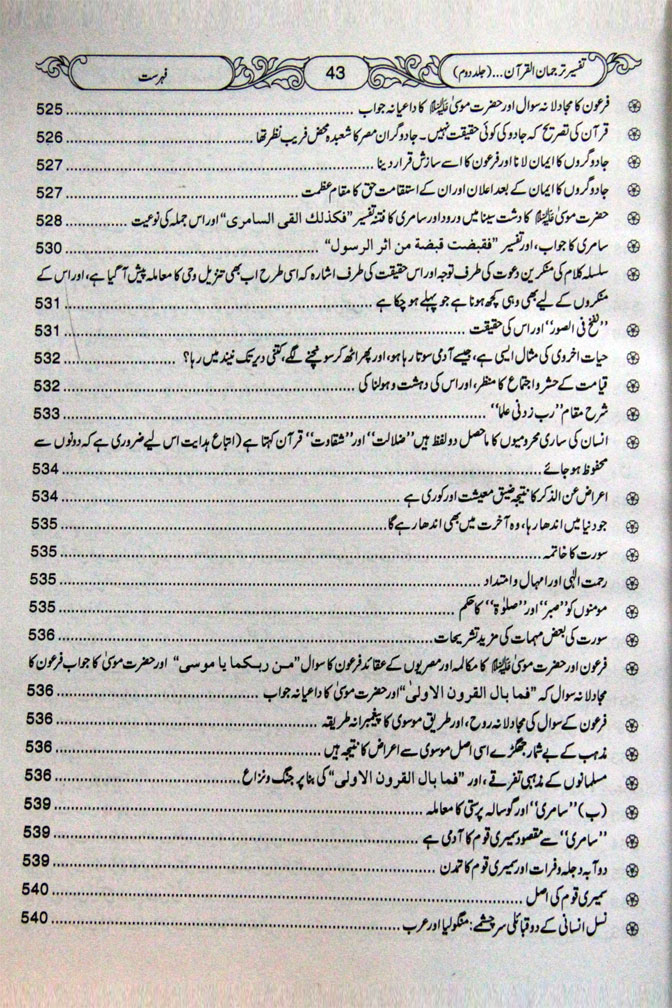 تفسیر ترجمان القرآن...(جلد دوم) 43 فہرست
فرعون کا مجادلانہ سوال اور حضرت موسیٰ ﷺ کا داعیانہ جواب ..... 525
قرآن کی تصریح کہ جادو کی کوئی حقیقت نہیں۔ جادوگران مصر کا شعبدہ محض فریب نظر تھا ..... 526
جادوگروں کا ایمان لانا اور فرعون کا اسے سازش قرار دینا ..... 527
جادوگروں کا ایمان کے بعد اعلان اور ان کے استقامت حق کا مقام عظمت ..... 527
حضرت موسیٰ ﷺ کا دشت سینا میں ورود اور سامری کا فتنہ تفسیر ”فکذلك القی السامری“ اور اس جملہ کی نوعیت ..... 528
سامری کا جواب، اور تفسیر ”فقبضت قبضة من اثر الرسول“ ..... 530
سلسلہ کلام کی منکرین دعوت کی طرف توجہ اور اس حقیقت کی طرف اشارہ کہ اسی طرح اب بھی تنزیل وحی کا معاملہ پیش آ گیا ہے، اور اس کے
منکروں کے لیے بھی وہی کچھ ہونا ہے جو پہلے ہو چکا ہے ..... 531
”نفخ فی الصور“ اور اس کی حقیقت ..... 531
حیات اخروی کی مثال ایسی ہے، جیسے آدمی سوتا رہا ہو، اور پھر اٹھ کر سوچنے لگے، کتنی دیر تک نیند میں رہا؟ ..... 532
قیامت کے حشر و اجتماع کا منظر، اور اس کی دہشت و ہولناکی ..... 532
شرح مقام ”رب زدنی علما“ ..... 533
انسان کی ساری محرومیوں کا ماحصل دو لفظ ہیں ”ضلالت“ اور ”شقاوت“ قرآن کہتا ہے (اتباع ہدایت اس لیے ضروری ہے کہ دونوں سے
محفوظ ہو جائے ..... 534
اعراض عن الذکر کا نتیجہ ضیق معیشت اور کوری ہے ..... 534
جو دنیا میں اندھا رہا، وہ آخرت میں بھی اندھا رہے گا ..... 535
سورت کا خاتمہ ..... 535
رحمت الٰہی اور امہال و امتداد ..... 535
مومنوں کو ”صبر“ اور ”صلوٰۃ“ کا حکم ..... 535
سورت کی بعض مہمات کی مزید تشریحات ..... 536
فرعون اور حضرت موسیٰ ﷺ کا مکالمہ اور مصریوں کے عقائد فرعون کا سوال ”من ربکما یا موسی“ اور حضرت موسیٰ کا جواب فرعون کا
مجادلانہ سوال کہ ”فما بال القرون الاولیٰ“ اور حضرت موسیٰ کا داعیانہ جواب ..... 536
فرعون کے سوال کی مجادلانہ روح، اور طریق موسوی کا پیغمبرانہ طریقہ ..... 536
مذہب کے بے شمار جھگڑے اسی اصل موسوی سے اعراض کا نتیجہ ہیں ..... 536
مسلمانوں کے مذہبی تفرقے، اور ”فما بال القرون الاولی“ کی بنا پر جنگ و نزاع ..... 536
(ب) ”سامری“ اور گوسالہ پرستی کا معاملہ ..... 539
”سامری“ سے مقصود سمیری قوم کا آدمی ہے ..... 539
دو آبہ دجلہ و فرات اور سمیری قوم کا تمدن ..... 539
سمیری قوم کی اصل ..... 540
نسل انسانی کے دو قبائلی سرچشمے: منگولیا اور عرب ..... 540